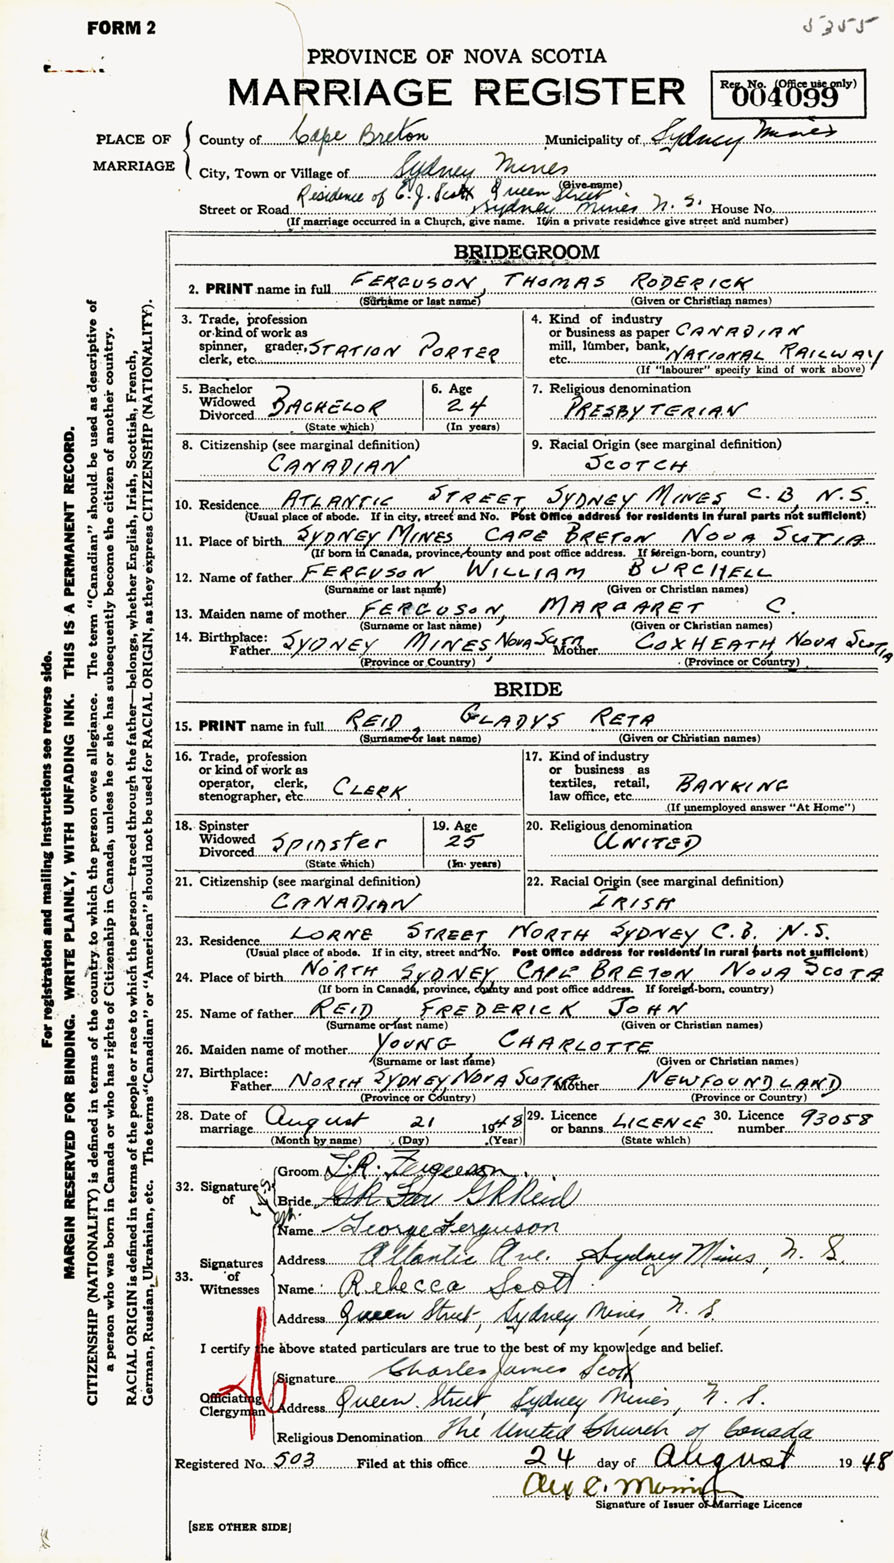 FORM 2
5355
PROVINCE OF NOVA SCOTIA
MARRIAGE REGISTER
Reg. No. (Office use only)
004099
PLACE OF MARRIAGE
County of Cape Breton Municipality of Sydney Mines
City, Town or Village of Sydney Mines
(Give name)
Residence of C. J. Scott Queen Street
Street or Road Sydney Mines N. S. House No.
(If marriage occurred in a Church, give name. If in a private residence give street and number)
BRIDEGROOM
2. PRINT name in full FERGUSON, THOMAS RODERICK
(Surname or last name) (Given or Christian names)
3. Trade, profession or kind of work as spinner, grader, clerk, etc. STATION PORTER
4. Kind of industry or business as paper mill, lumber, bank, etc. CANADIAN NATIONAL RAILWAY
(If "labourer" specify kind of work above)
5. Bachelor Widowed Divorced BACHELOR
(State which)
6. Age 24
(In years)
7. Religious denomination
PRESBYTERIAN
8. Citizenship (see marginal definition)
CANADIAN
9. Racial Origin (see marginal definition)
SCOTCH
10. Residence ATLANTIC STREET SYDNEY MINES C.B. N.S.
(Usual place of abode. If in city, street and No. Post Office address for residents in rural parts not sufficient)
11. Place of birth SYDNEY MINES CAPE BRETON NOVA SCOTIA
(If born in Canada, province, county and post office address. If foreign-born, country)
12. Name of father FERGUSON WILLIAM BURCHELL
(Surname or last name) (Given or Christian names)
13. Maiden name of mother FERGUSON, MARGARET C.
(Surname or last name) (Given or Christian names)
14. Birthplace: Father SYDNEY MINES NOVA SCOTIA Mother COXHEATH, NOVA SCOTIA
(Province or Country) (Province or Country)
BRIDE
15. PRINT name in full REID, GLADYS RETA
(Surname or last name) (Given or Christian names)
16. Trade, profession or kind of work as operator, clerk, stenographer, etc. CLERK
17. Kind of industry or business as textiles, retail, law office, etc. BANKING
(If unemployed answer "At Home")
18. Spinster Widowed Divorced Spinster
(State which)
19. Age 25
(In years)
20. Religious denomination
UNITED
21. Citizenship (see marginal definition)
CANADIAN
22. Racial Origin (see marginal definition)
IRISH
23. Residence LORNE STREET NORTH SYDNEY C.B. N.S.
(Usual place of abode. If in city, street and No. Post Office address for residents in rural parts not sufficient)
24. Place of birth NORTH SYDNEY CAPE BRETON NOVA SCOTA
(If born in Canada, province, county and post office address. If foreign-born, country)
25. Name of father REID, FREDERICK JOHN
(Surname or last name) (Given or Christian names)
26. Maiden name of mother YOUNG CHARLOTTE
(Surname or last name) (Given or Christian names)
27. Birthplace: Father NORTH SYDNEY NOVA SCOTIA Mother NEWFOUNDLAND
(Province or Country) (Province or Country)
28. Date of marriage August 21 1948
(Month by name) (Day) (Year)
29. Licence or banns LICENCE
(State which)
30. Licence number 93058
32. Signature of
Groom T. R. Ferguson.
Bride G R Reid
33. Signatures of Witnesses
Name George Ferguson
Address Atlantic Ave. Sydney Mines, N. S.
Name Rebecca Scott
Address Queen Street, Sydney Mines, N. S.
I certify the above stated particulars are true to the best of my knowledge and belief.
Officiating Clergyman
Signature Charles James Scott
Address Queen Street, Sydney Mines, N. S.
Religious Denomination The United Church of Canada
Registered No. 503 Filed at this office 24 day of August 1948
Signature of Issuer of Marriage Licence
[SEE OTHER SIDE]
For registration and mailing instructions see reverse side.
MARGIN RESERVED FOR BINDING. WRITE PLAINLY, WITH UNFADING INK. THIS IS A PERMANENT RECORD.
CITIZENSHIP (NATIONALITY) is defined in terms of the country to which the person owes allegiance. The term "Canadian" should be used as descriptive of
a person who was born in Canada or who has rights of Citizenship in Canada, unless he or she has subsequently become the citizen of another country.
RACIAL ORIGIN is defined in terms of the people or race to which the person—traced through the father—belongs, whether English, Irish, Scottish, French,
German, Russian, Ukrainian, etc. The terms "Canadian" or "American" should not be used for RACIAL ORIGIN, as they express CITIZENSHIP (NATIONALITY).